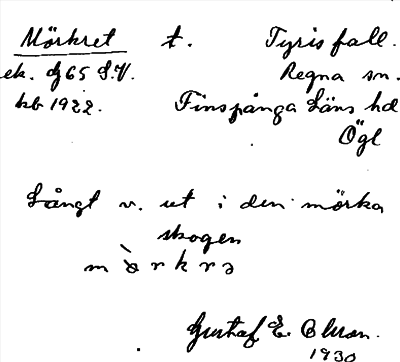 Mörkret t. Tyrisfall.
ek. dj65 S.V. Regna sn.
hb 1922. Finspånga Läns hd
Ögl
Långt v. ut i den mörka
skogen
m ɔ̀ r k r ə
Gustaf E. Olsson.
1930